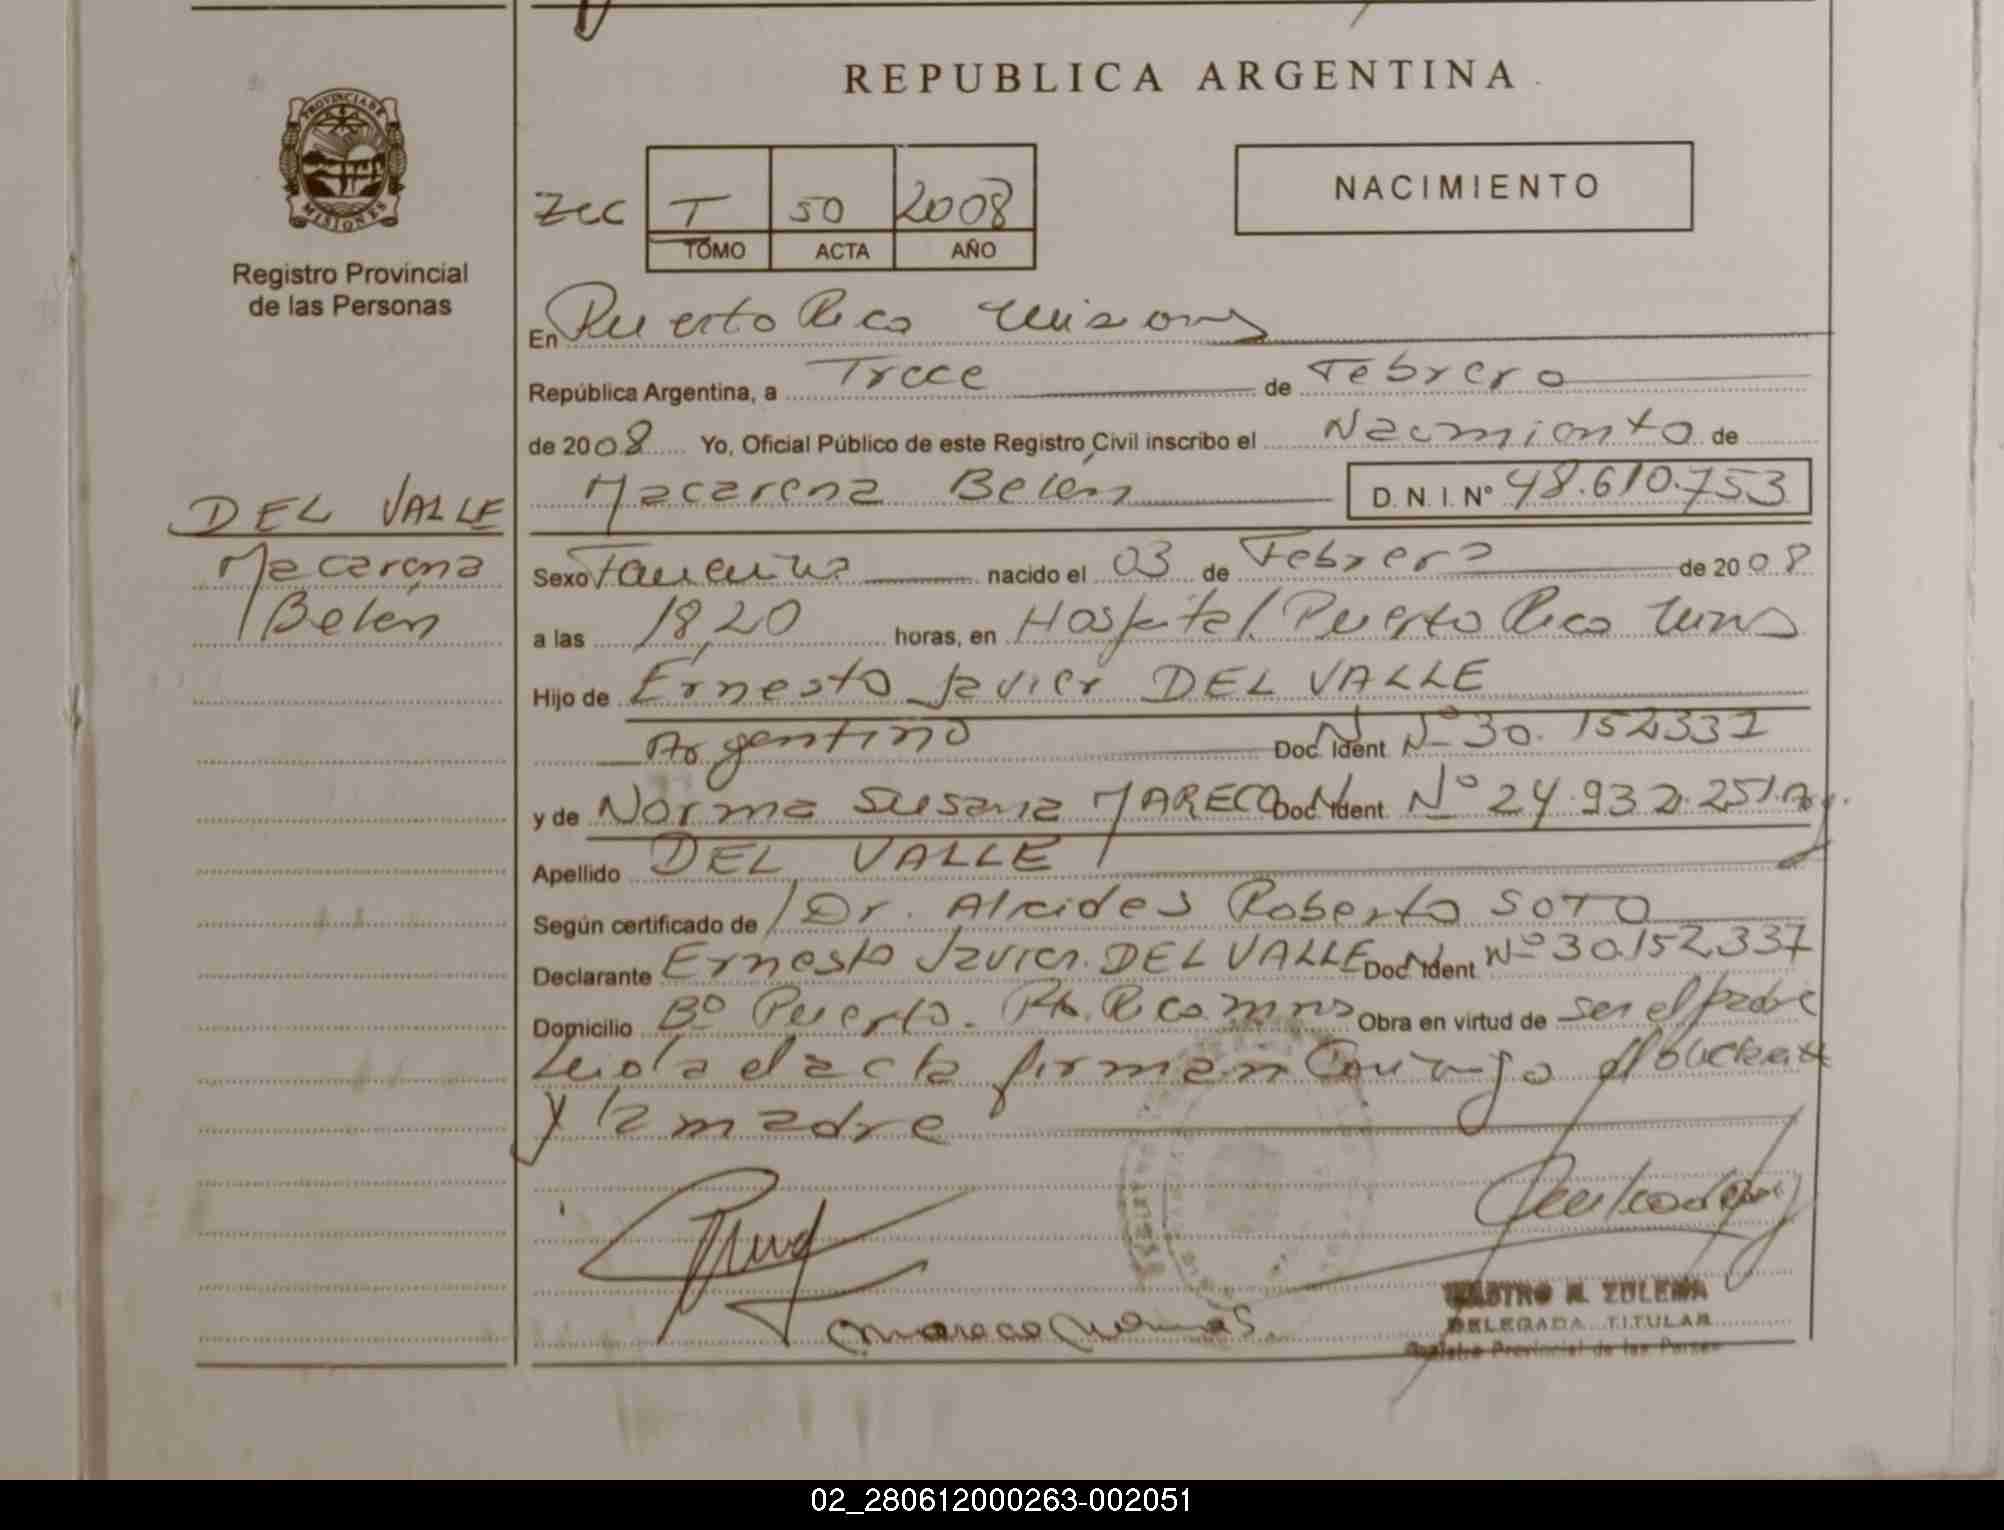 REPUBLICA ARGENTINA
PROVINCIA DE
MISIONES
Registro Provincial
de las Personas
T 50 2008
TOMO ACTA AÑO
NACIMIENTO
En Puerto Rico Misiones
República Argentina, a Trece de Febrero
de 2008 Yo, Oficial Público de este Registro Civil inscribo el Nacimiento de
Macarena Belén D. N. I. Nº 48.610.753
DEL VALLE
Macarena
Belén
Sexo Femenino nacido el 03 de Febrero de 2008
a las 18,20 horas, en Hospital Puerto Rico Mnes
Hijo de Ernesto Javier DEL VALLE
Argentino Doc. Ident. N Nº 30.152337
y de Norma Susana MARECO Doc. Ident. N Nº 24.932.251 Arg.
Apellido DEL VALLE
Según certificado de Dr. Alcides Roberto SOTO
Declarante Ernesto Javier DEL VALLE Doc. Ident. N Nº 30.152.337
Domicilio Bº Puerto. Pto. Rico Mnes Obra en virtud de ser el padre
Leida el acta firman Conmigo el declarante
y la madre
Mareco Norma S.
M. ZULEMA
DELEGADA TITULAR
Registro Provincial de las Person
02_280612000263-002051